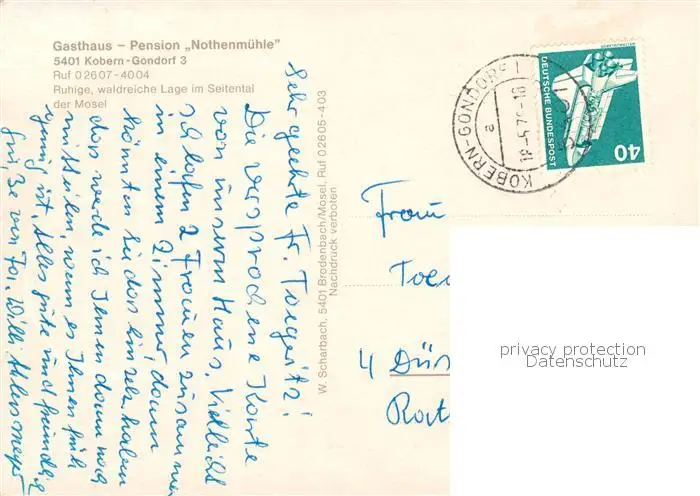 Gasthaus – Pension „Nothenmühle"
5401 Kobern-Gondorf 3
Ruf 02607-4004
Ruhige, waldreiche Lage im Seitental
der Mosel
Sehr geehrte Fr. Toegeritz!
Die versprochene Karte
von unserm Haus. Vielleicht
schlafen 2 Frauen zusammen
in einem Zimmer, dann
könnten Sie das Einzel haben
das werde ich Ihnen dann noch
mitteilen, wenn es Ihnen früh
genug ist. Alles gute und freundliche
Grüße von Fa. Willi
W. Scharbach, 5401 Brodenbach/Mosel, Ruf 02605-403
Nachdruck verboten
KOBERN-GONDORF 1
a
18.-5.76-16
DEUTSCHE BUNDESPOST
40
Frau
Toe
4 Düs
Rat
privacy protection
Datenschutz